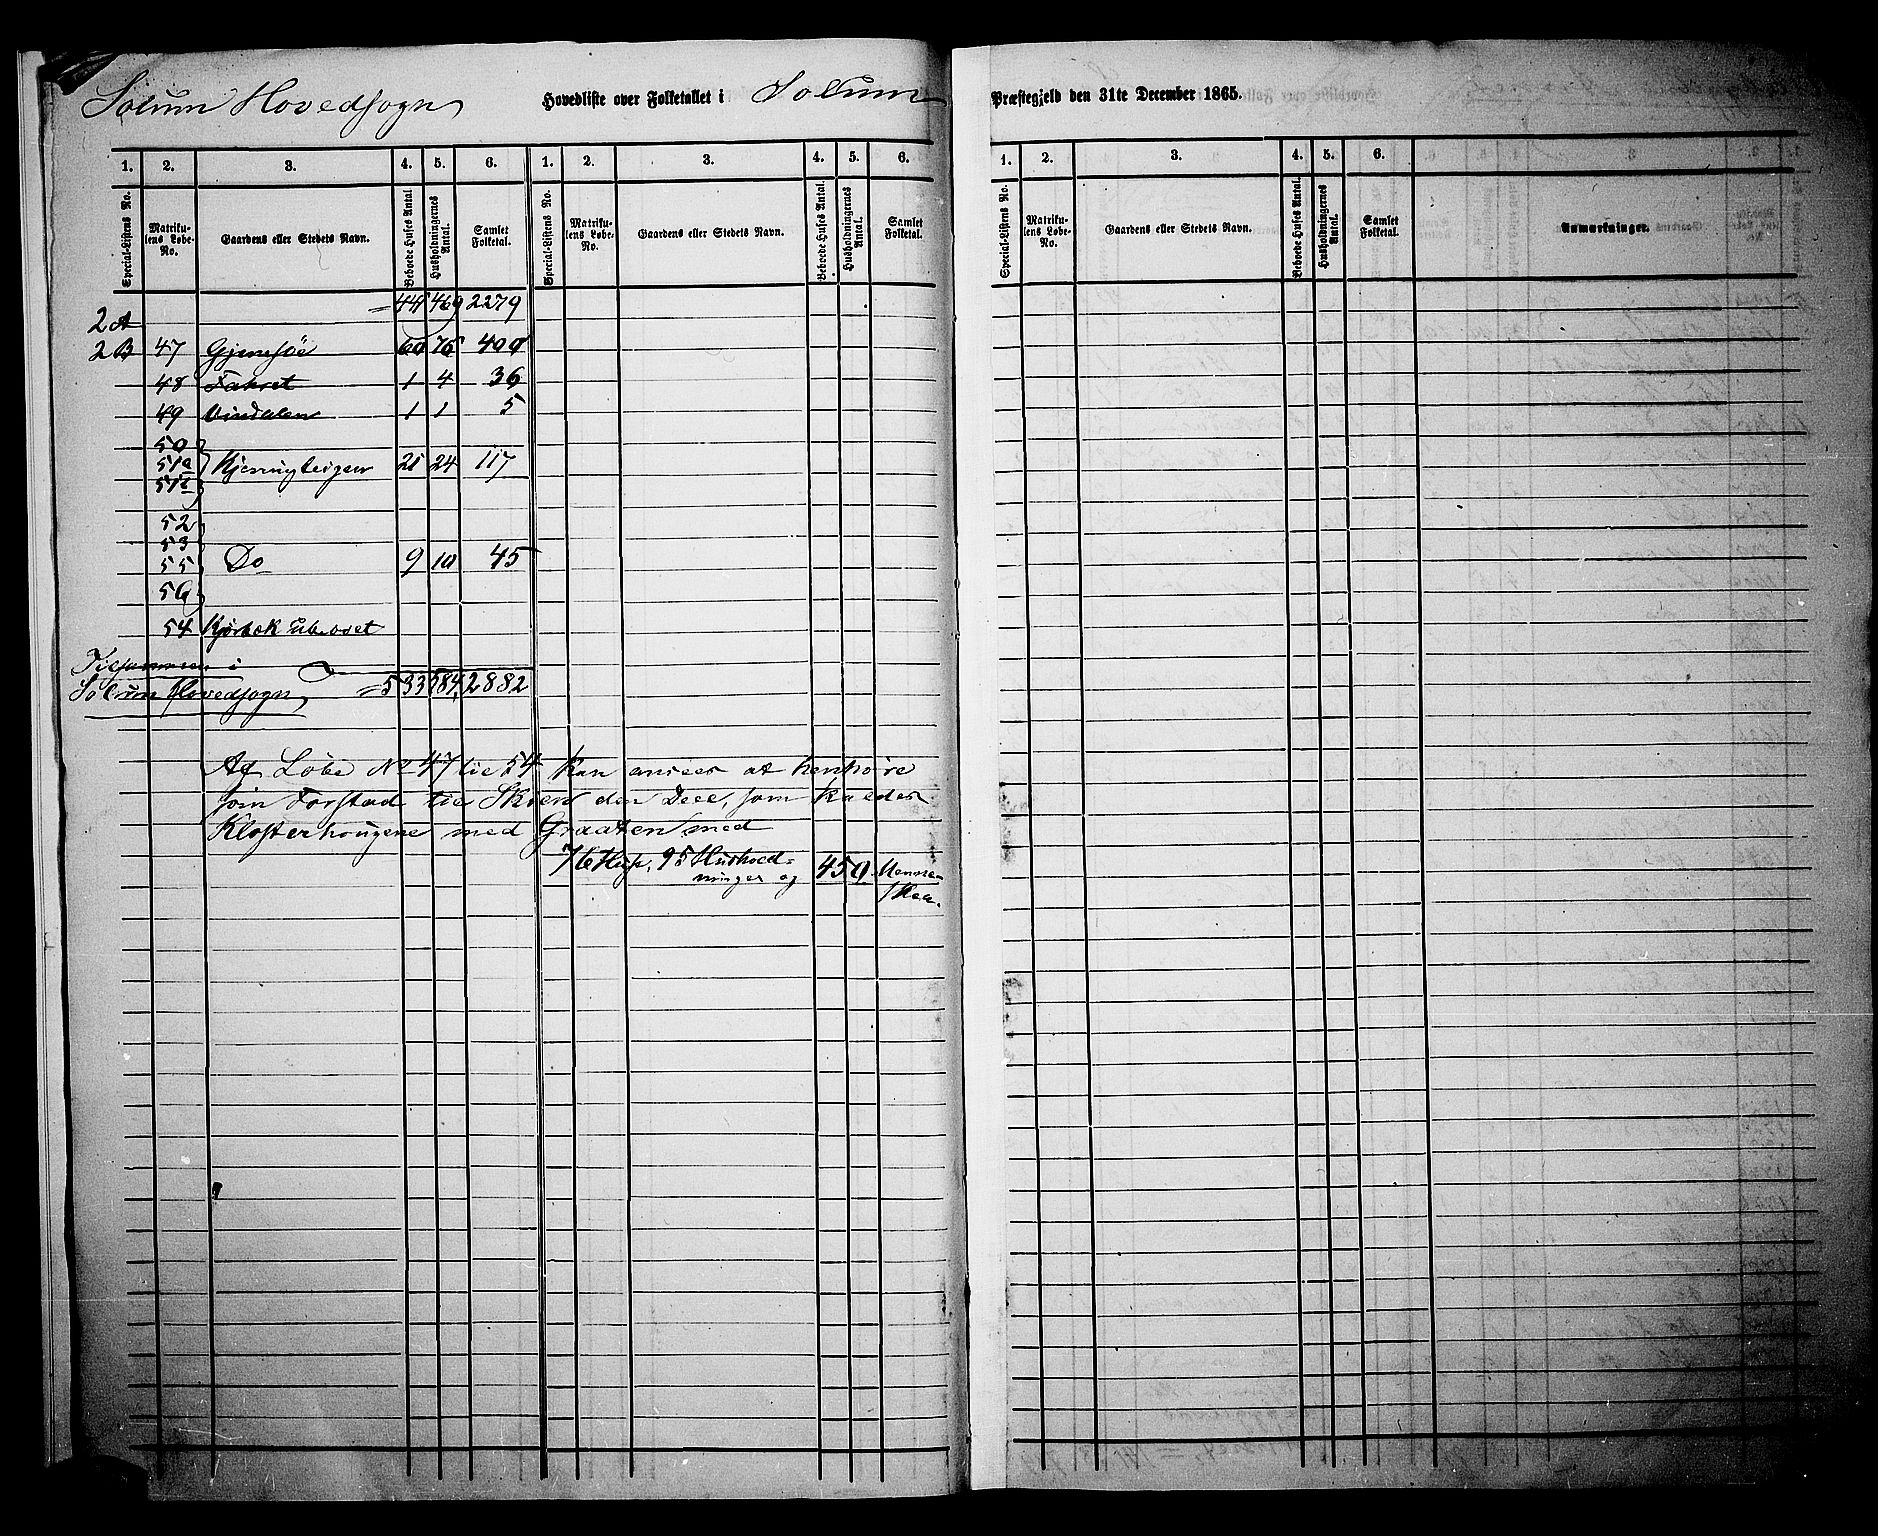 Solum Hovedsogn Hovedliste over Folketallet i Solum Præstegjeld den 31te December 1865.
1. 2. 3. 4. 5. 6. 1. 2. 3. 4. 5. 6. 1. 2. 3. 4. 5. 6.
Special-Listens No. Matriku-lens Løbe-No. Gaardens eller Stedets Navn. Beboede Huses Antal Husholdningernes Antal. Samlet Folketal. Special-Listens No. Matriku-lens Løbe-No. Gaardens eller Stedets Navn. Beboede Huses Antal. Husholdningernes Antal. Samlet Folketal. Special-Listens No. Matriku-lens Løbe-No. Gaardens eller Stedets Navn. Beboede Huses Antal. Husholdningernes Antal. Samlet Folketal. Anmærkninger.
2A = 441 469 2279
2B 47 Gjemsøe 60 76 400
48 Fahret 1 4 36
49 1 1 5
50
51a Kjerringteigen 21 24 117
51b
52
53
55 Do 9 10 45
56
54 Kjørbæk ubeboet
Tilsammen i
Solum Hovedsogn = 533 584 2882
Af Løbe No 47 til 54 kan ansees at henhøre
som Forstad til Skien den Deel, som kaldes
Klosterhougene med Graaten med
76 Huse, 95 Hushold-
ninger og 450 Menne-
sker.